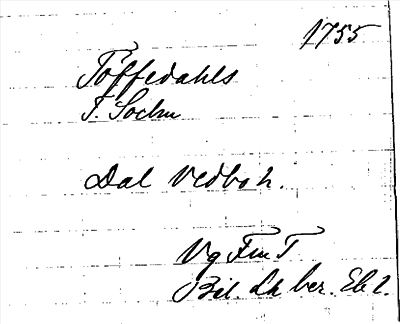 1755
Töftedahls
T. Sockn
Dal Vedbo h.
Vg Fm T
Bil. Lh ber. Eb 2.